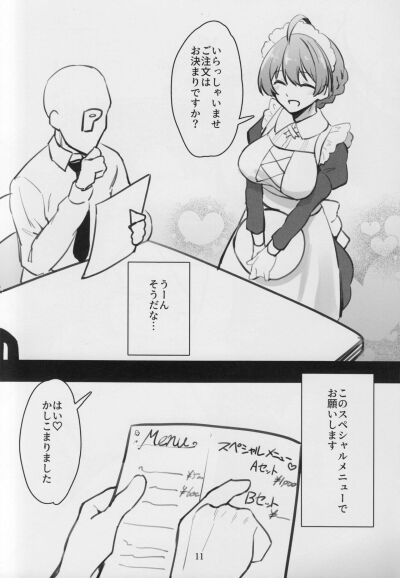 いらっしゃいませ
ご注文は
お決まりですか?
P
うーん
そうだな…
このスペシャルメニューで
お願いします
はい♡
かしこまりました
Menu
スペシャルメニュー♡
Aセット
¥1,000
Bセット
11